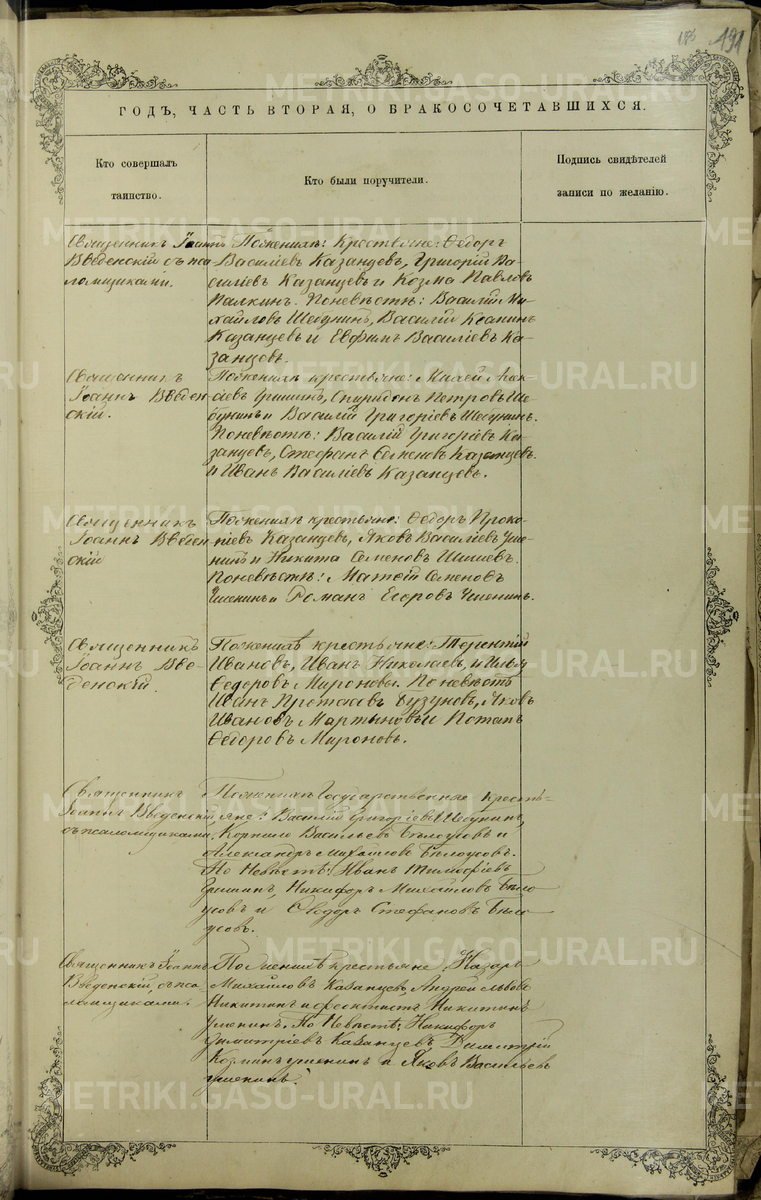 191
ГОДЪ, ЧАСТЬ ВТОРАЯ, О БРАКОСОЧЕТАВШИХСЯ.
Кто совершалъ
таинство.
Кто были поручители.
Подпись свидѣтелей
записи по желанію.
Священникъ Іоаннъ
Введенскій съ пса
ломщиками.
По женихѣ: Крестьяне: Ѳедоръ
Василіевъ Казанцевъ, Григорій Ва-
силіевъ Казанцевъ и Козма Павловъ
Палкинъ. По невѣстѣ: Василій Ми-
хайловъ Шебунинъ, Василій
Казанцевъ и Евфимъ Василіевъ Ка-
занцовъ.
Священникъ
Іоаннъ Введен-
скій.
По женихѣ крестьяне:
Гришинъ, Спиридонъ Петровъ Ше-
бунинъ и Василій Григоріевъ Шебунинъ.
По невѣстѣ: Василій Григоріевъ Ка-
занцевъ, Стефанъ Семеновъ Казанцевъ
и Иванъ Василіевъ Казанцевъ.
Священникъ
Іоаннъ Введен-
скій
По женихѣ крестьяне: Ѳедоръ Проко-
піевъ Казанцевъ, Яковъ Василіевъ Уше-
нинъ и Никита Семеновъ
По невѣстѣ: Матѳей Семеновъ
Ушенинъ и Романъ Егоровъ Ушенинъ.
Священникъ
Іоаннъ Вве-
денскій.
По женихѣ крестьяне: Терентій
Ивановъ, Иванъ Николаевъ, и Илья
Ѳедоровъ Мироновы. По невѣстѣ
Иванъ Бузуновъ, Яковъ
Ивановъ Мартыновъ и Потапъ
Ѳедоровъ Мироновъ.
Священникъ
Іоаннъ Введенскій
съ псаломщиками,
По женихѣ Государственные кресть-
яне: Василій Григоріевъ Шебунинъ,
Корнило Васильевъ Бѣлоусовъ и
Александръ Михайловъ Бѣлоусовъ.
По Невѣстѣ: Иванъ Тимофіевъ
Никифоръ Михайловъ Бѣло
усовъ и Ѳеодоръ Стефановъ Бѣло
усовъ.
Священникъ Іоаннъ
Введенскій, съ пса-
ломщиками.
По женихѣ крестьяне: Назаръ
Михайловъ Казанцевъ, Андрей Львовъ
Никитинъ и Феоктистъ Никитинъ
Ушенинъ. По Невѣстѣ: Никифоръ
Димитріевъ Казанцевъ Димитрій
Козминъ Ушенинъ и Яковъ Васильевъ
Ушенинъ.
METRIKI.GASO-URAL.RU